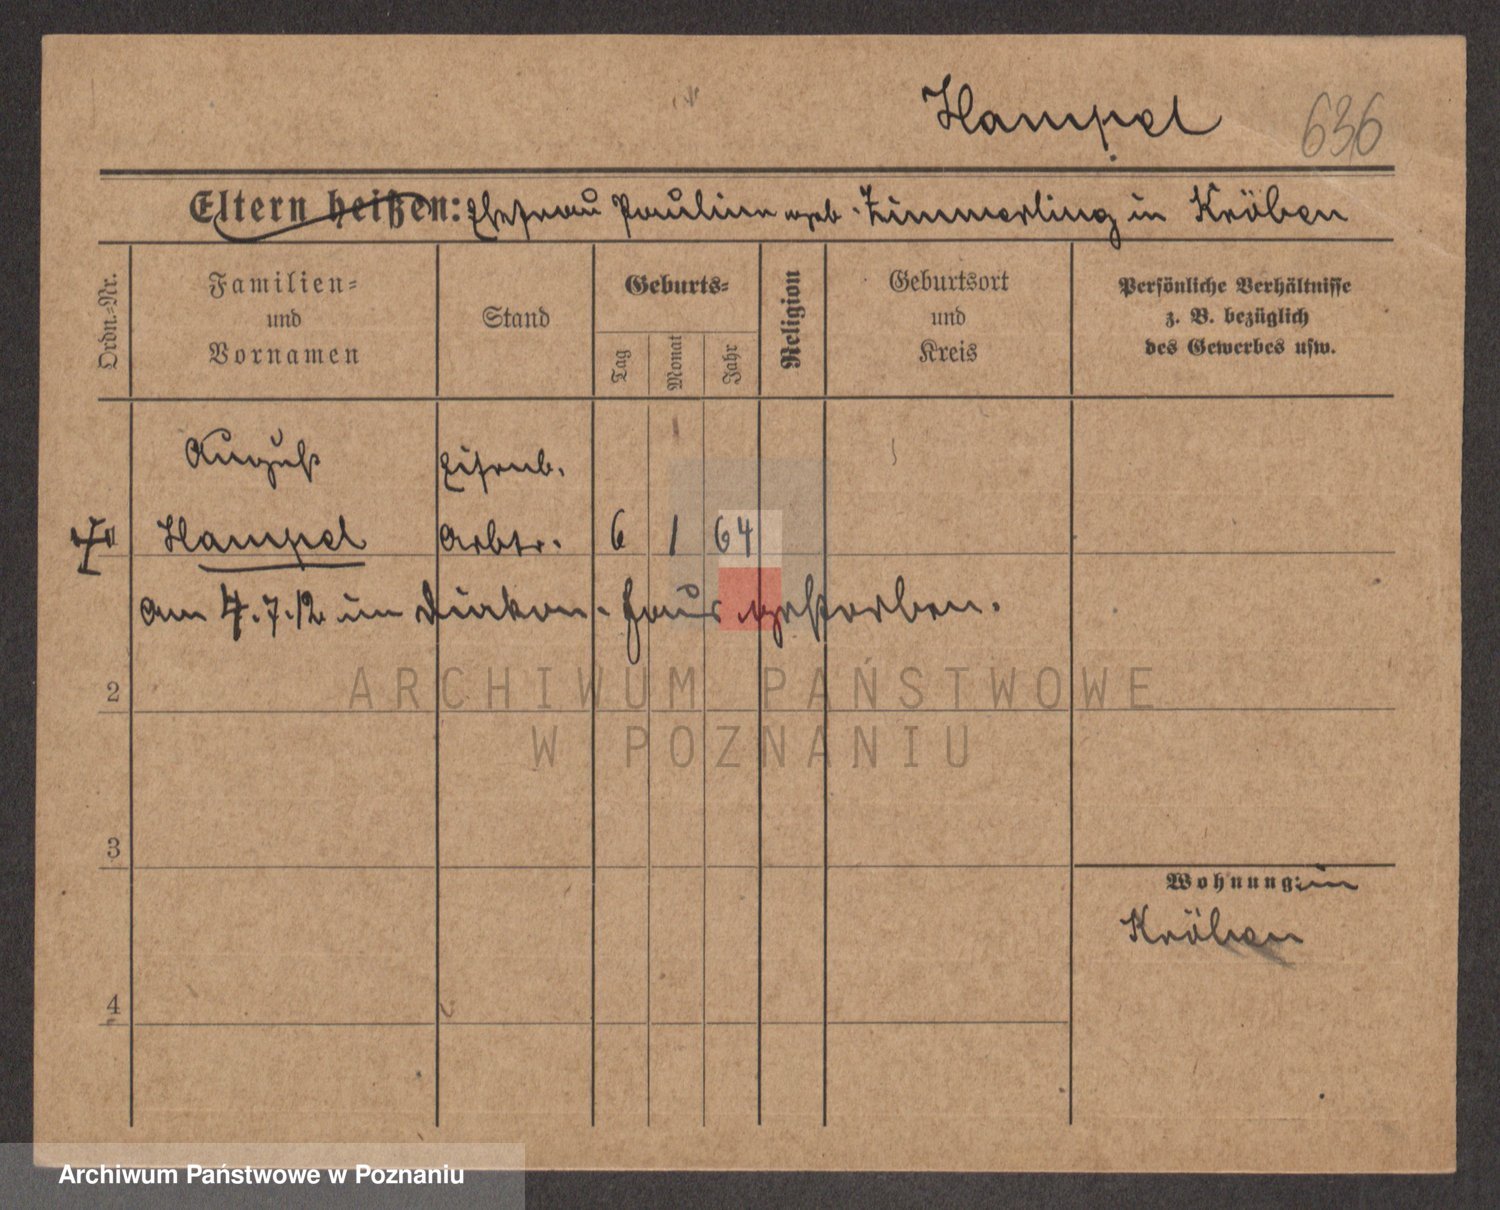 Hampel 636
Eltern heißen: Ehefrau Pauline geb. Zimmerling in Kröben
Ordn.-Nr.
Familien-
und
Vornamen
Stand
Geburts-
Tag
Monat
Jahr
Religion
Geburtsort
und
Kreis
Persönliche Verhältnisse
z. B. bezüglich
des Gewerbes usw.
August Eisenb.
Hampel Arbtr. 6 1 64
Am 4.7.12 im Diakon.-Haus gestorben.
ARCHIWUM PAŃSTWOWE
W POZNANIU
2
3
Wohnung: in
Kröben
4
Archiwum Państwowe w Poznaniu